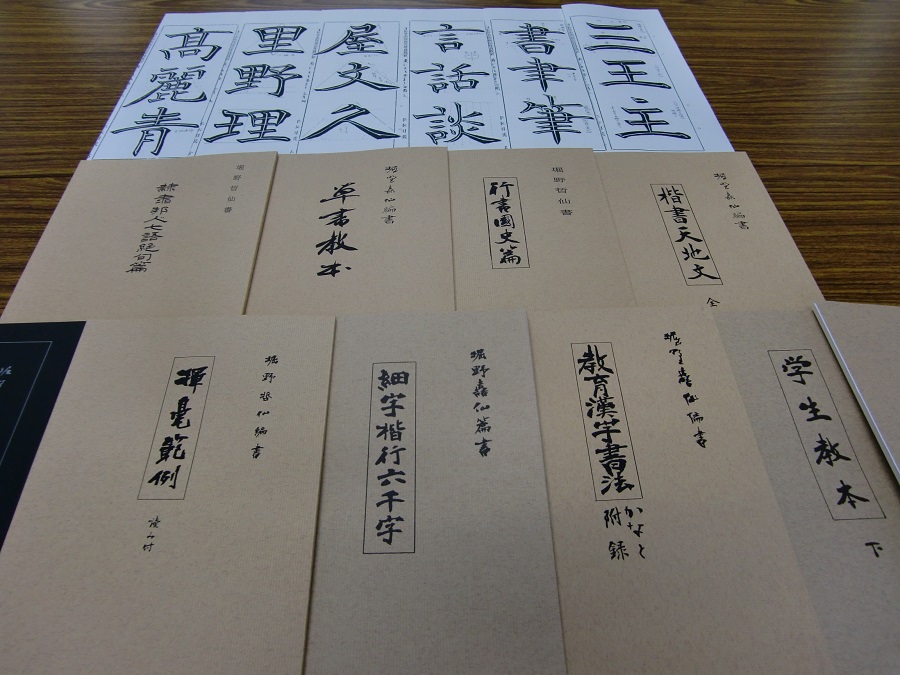 三王主
書聿筆
言話談
屋文久
里野理
髙麗青
堀野哲仙編書
楷書天地文
全
堀野哲仙書
行書國史篇
堀野哲仙編書
草書教本
堀野哲仙書
隷書邦人七語絶句篇
学生教本
下
堀野哲仙編書
教育漢字書法
かなと
附録
堀野哲仙篇書
細字楷行六千字
堀野哲仙編書
揮毫範例
読み付